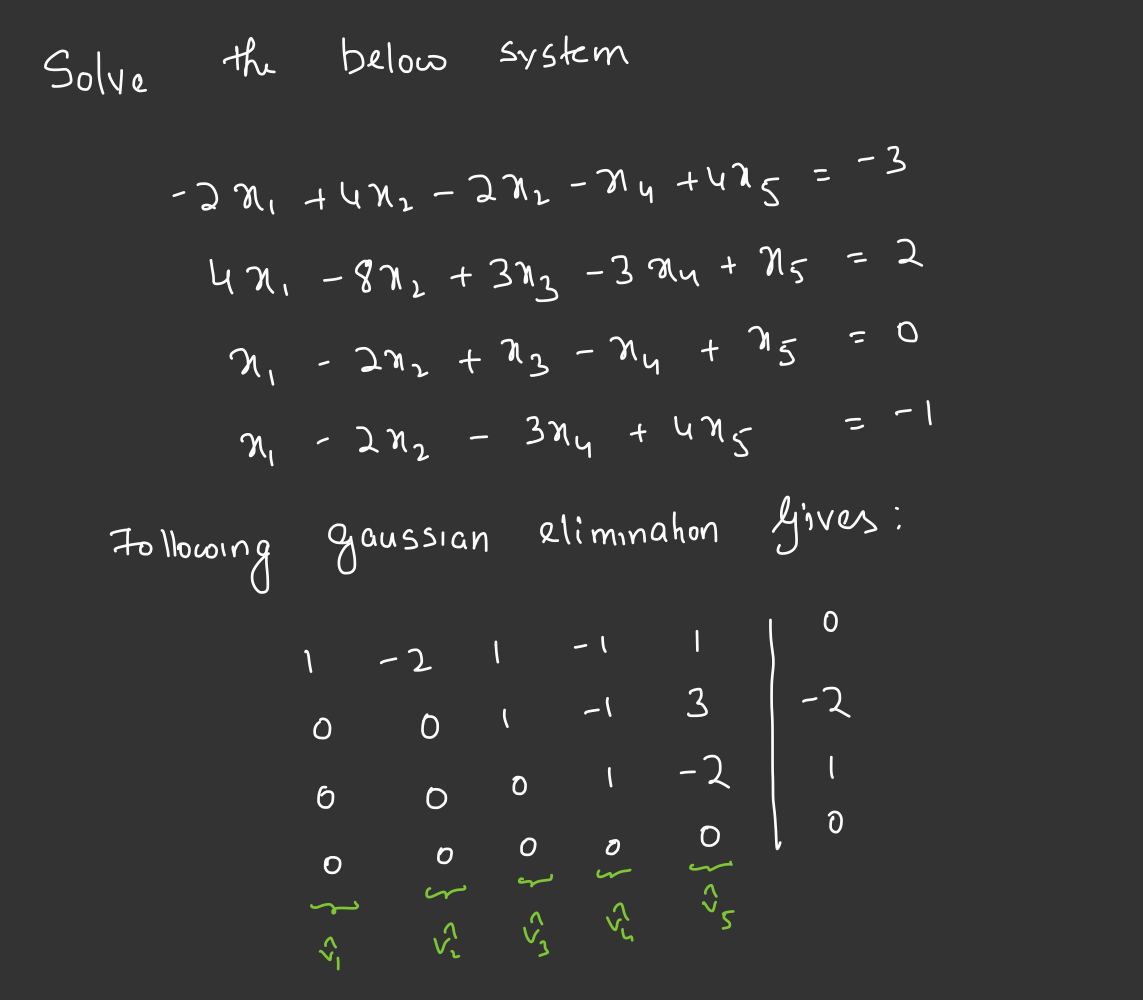 Solve the below system
-2x₁ + 4x₂ - 2x₂ - x₄ + 4x₅ = -3
4x₁ - 8x₂ + 3x₃ - 3x₄ + x₅ = 2
x₁ - 2x₂ + x₃ - x₄ + x₅ = 0
x₁ - 2x₂ - 3x₄ + 4x₅ = -1
Following gaussian elimination gives:
1 -2 1 -1 1 | 0
0 0 1 -1 3 | -2
0 0 0 1 -2 | 1
0 0 0 0 0 | 0
v̂₁ v̂₂ v̂₃ v̂₄ v̂₅